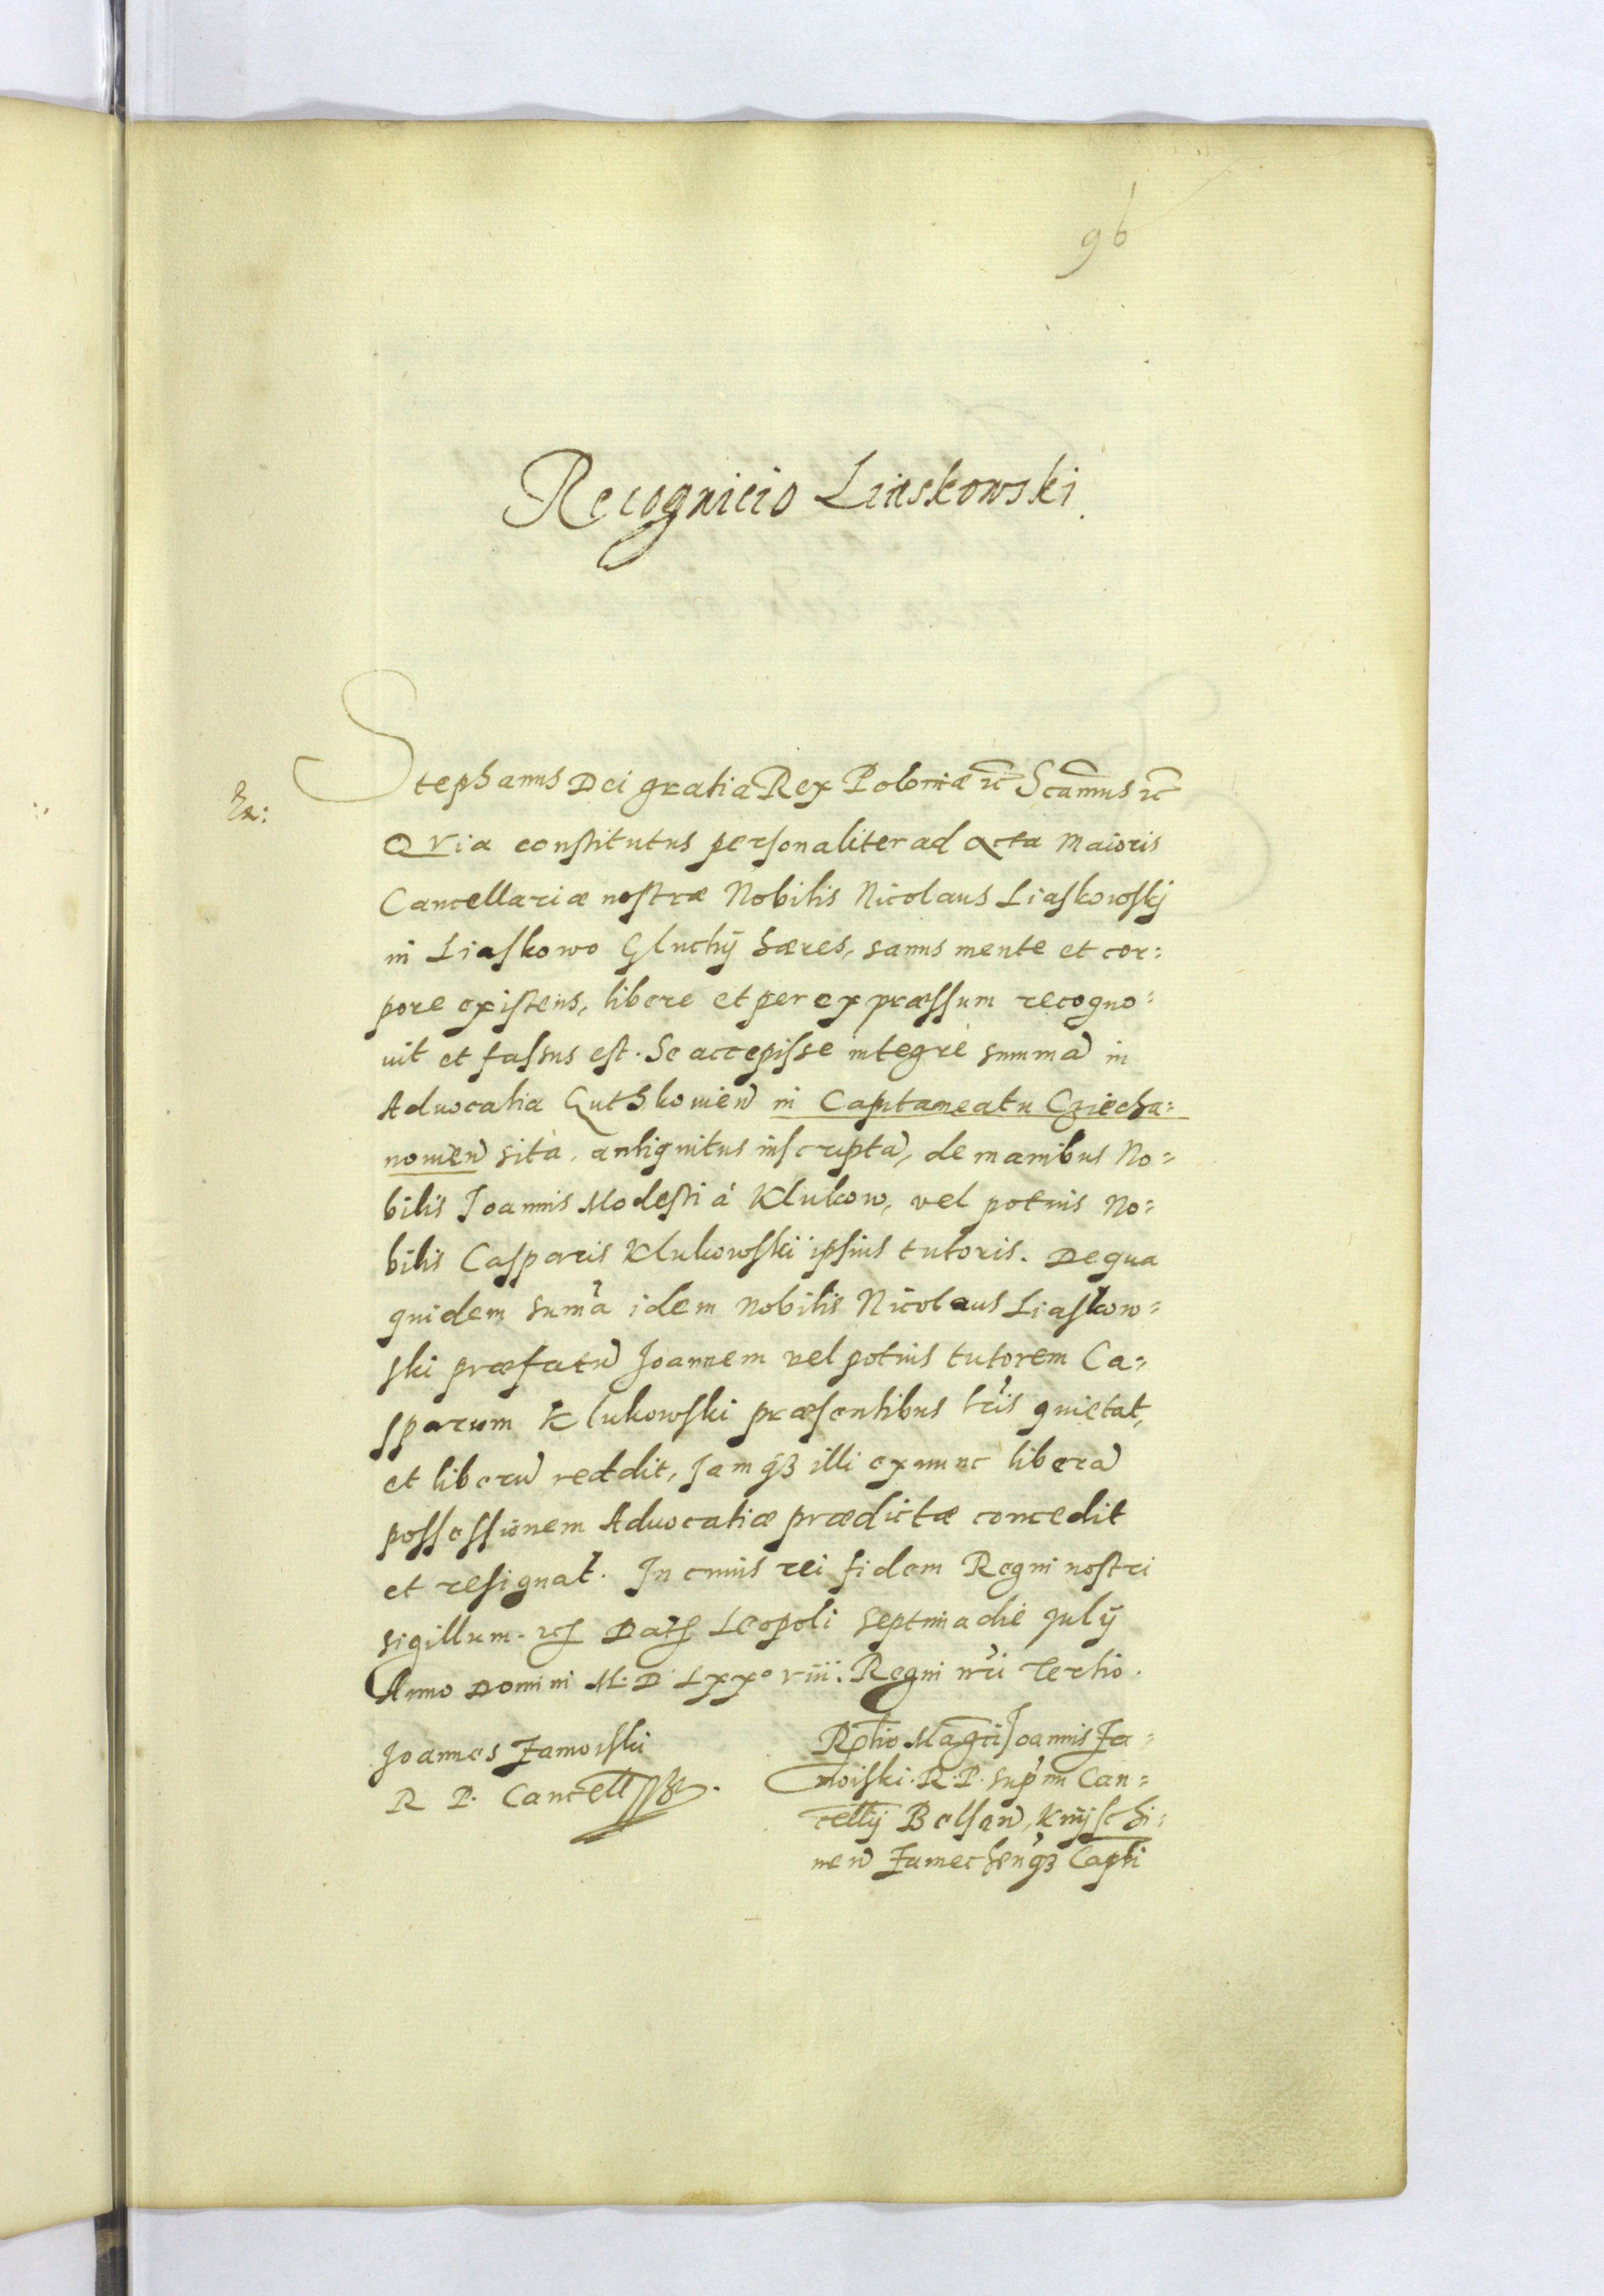 96
Recognicio Liaskowski
Stephanus Dei gratia Rex Poloniæ ꝛc̃ Scam̃us ꝛc̃
QVia constitutus personaliter ad Acta Maioris
Cancellariæ nostræ Nobilis Nicolaus Liaskowskÿ
in Liaskowo Gluchÿ hæres, sanus mente et cor:
pore existens, libere et per expræssum recogno:
uit et fassus est. Se accepisse integrè summã in
Aduocatia Guthkouieñ in Capitaneatu Cziecha:
nouieñ sita, antiquitus inscriptã, de manibus No:
bilis Joannis Modesti á Klukow, vel potius No:
bilis Casparis Klukowskï ipsius tutoris. De qua
quidem sum̃a idem Nobilis Nicolaus Liaskow:
ski præfatũ Joannem vel potius tutorem Ca:
sparum Klukowski præsentibus lr̃is quietat,
et liberũ reddit, Jamqꝫ illi ex nunc liberã
possessionem Aduocatiæ prædictæ concedit
et resignat. In cuius rei fidem Regni nostri
sigillum. ꝛc̃ Datꝭ Leopoli septima die Julÿ
Anno Domini M. D. Lxxº viii. Regni nr̃i Tertio.
Joannes Zamoiski
R P. Cancell ssst.
Rl̃tio Mag̃ci Joannis Za:
moiski. R. P. sup̃mi Can:
cellÿ Belseñ, Knÿschi:
neñ Zamechenqꝫ Capti